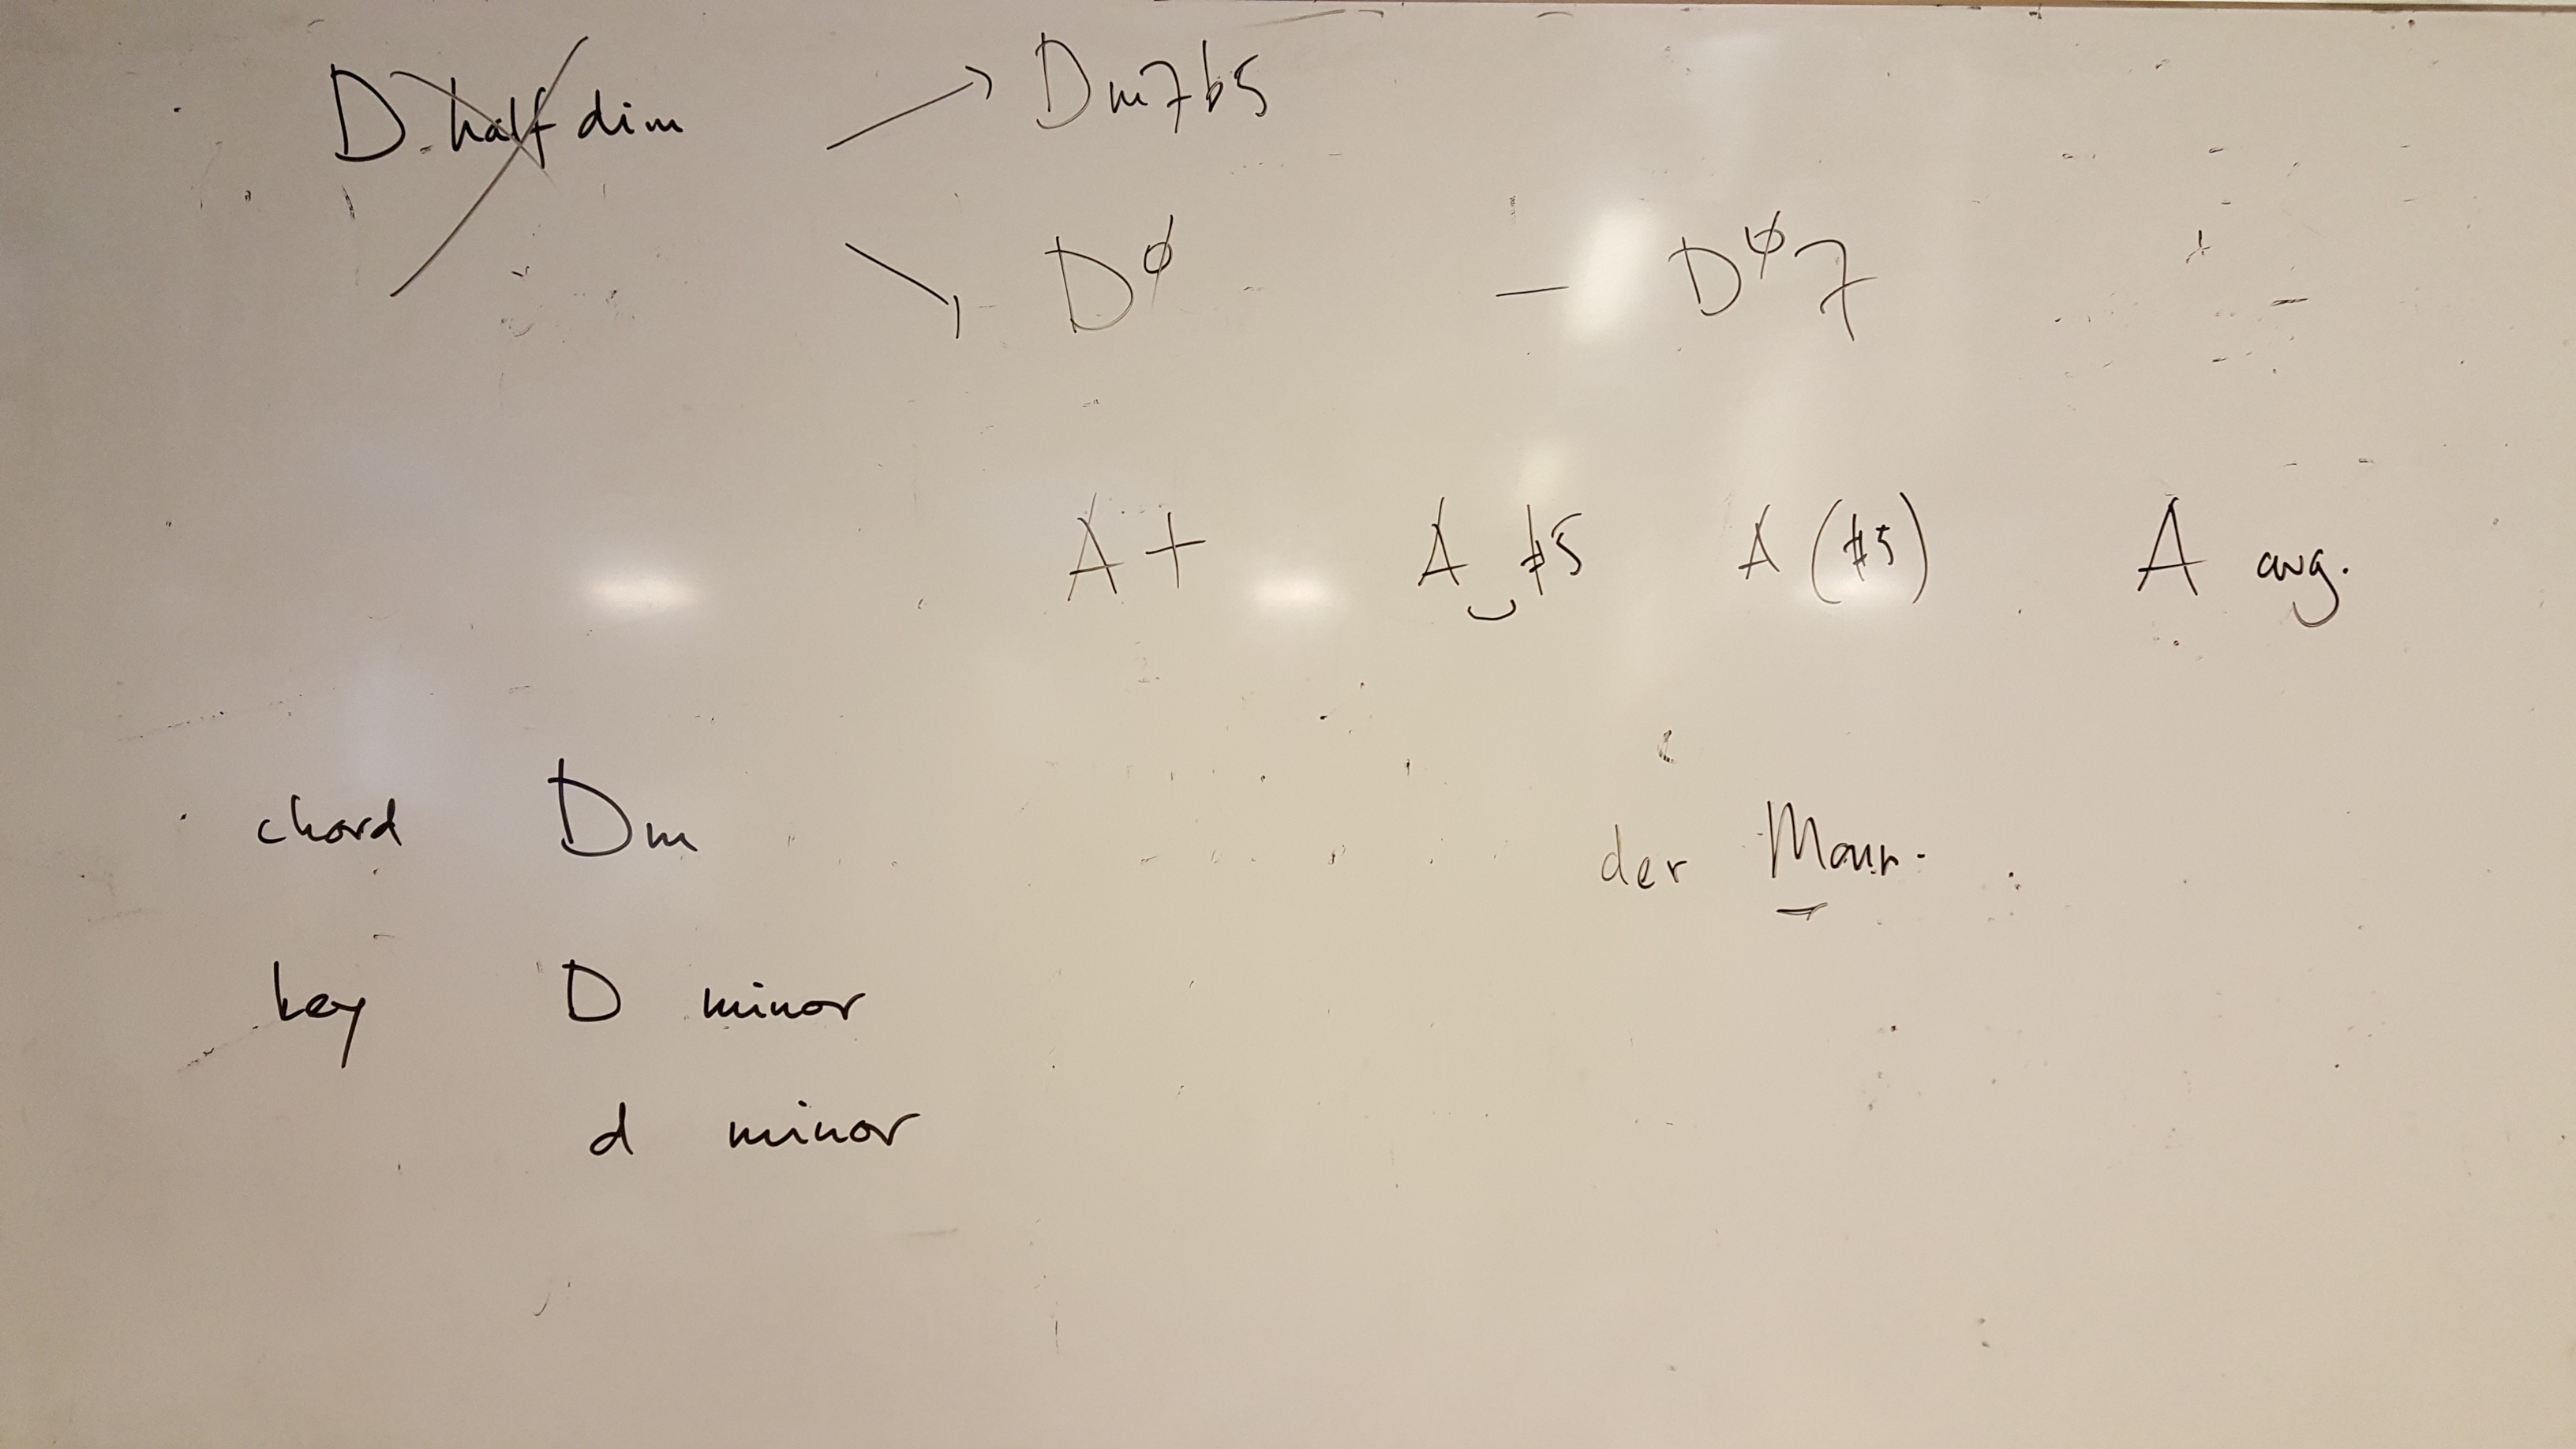 D half dim → Dm7b5
↘ Dø — Dø7
A+ A #5 A (#5) A aug.
chord Dm
der Mann.
key D minor
d minor